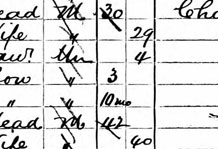 ead M. 30 Cha
ife " 29
au'r Un 4
Son " 3
" " 10mo
Head M. 42
ife " 40